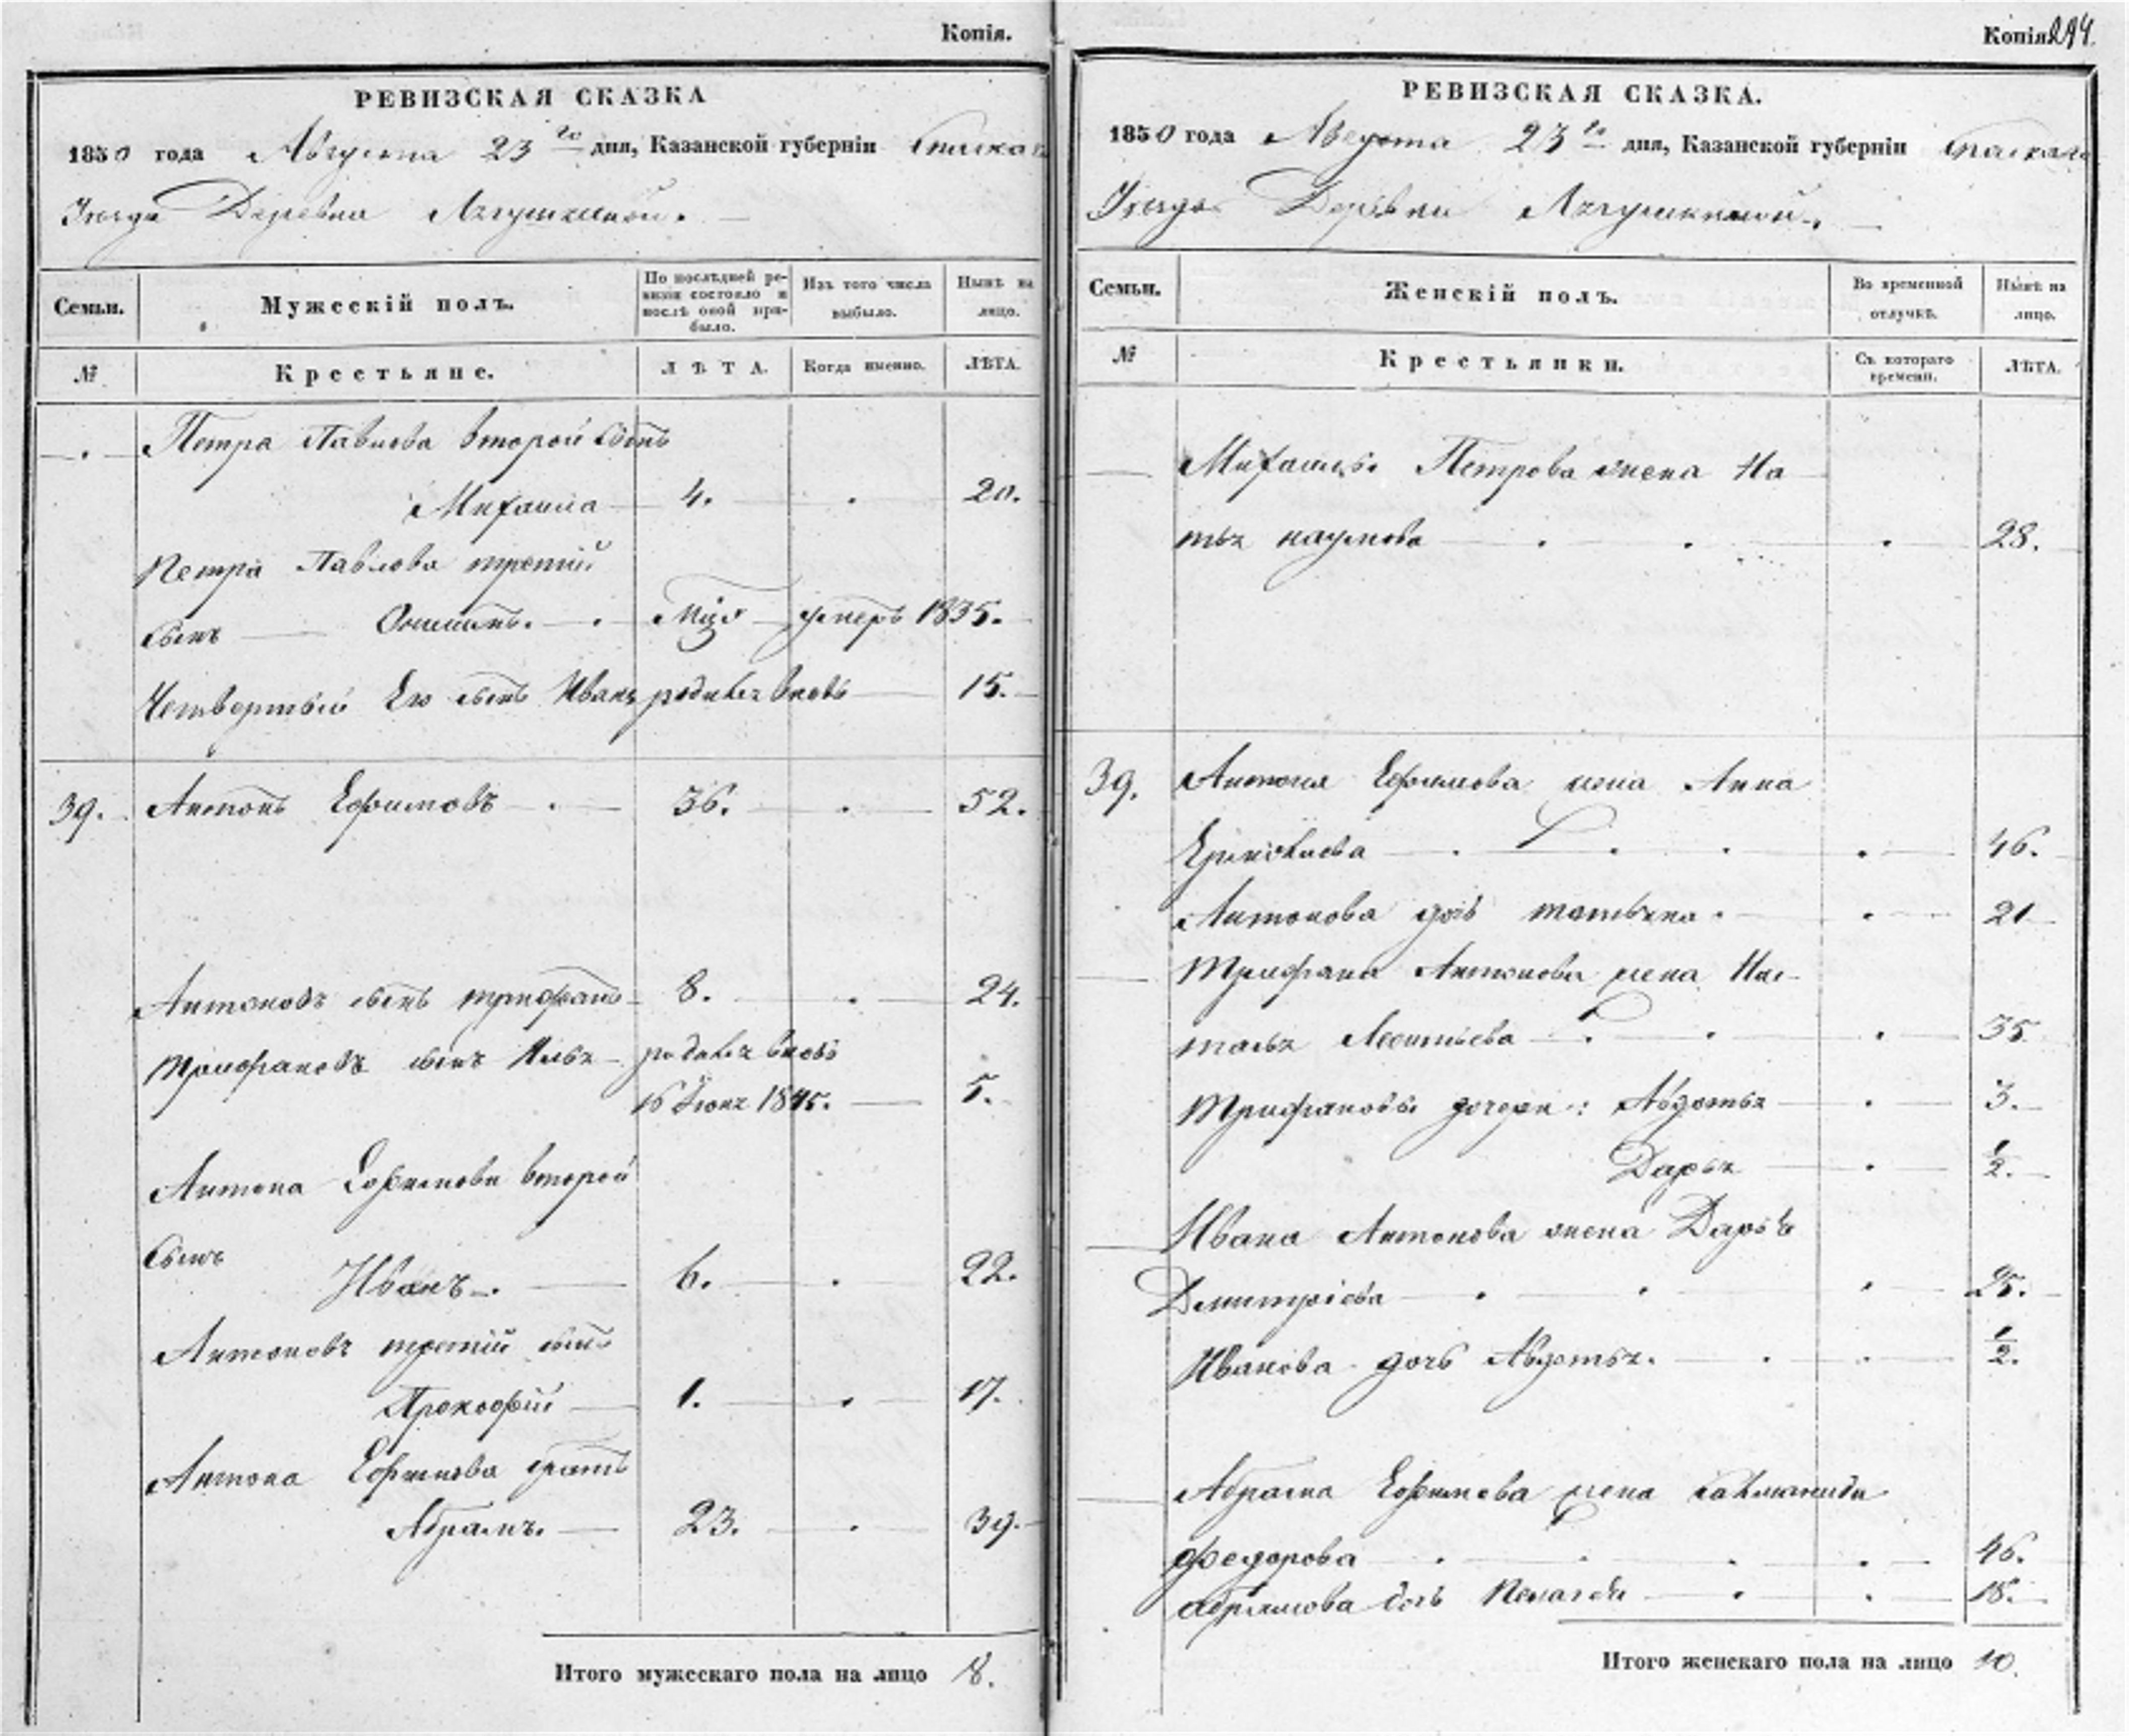 Копія.
РЕВИЗСКАЯ СКАЗКА
1850 года Августа 23го дня, Казанской губерніи Спаскаго
Уезда Деревни Лягушкиной.
Семьи.
Мужескій полъ.
По послѣдней ре-
визіи состояло и
послѣ оной при-
было.
Изъ того числа
выбыло.
Нынѣ на
лицо.
№
Крестьяне.
ЛѢТА.
Когда именно.
ЛѢТА.
Петра Павлова второй сынъ
Михаила 4. 20.
Петра Павлова третій
сынъ умеръ 1835.
Четвертый Его сынъ Иванъ родился вновь 15.
39. Антонъ Ефимовъ 36. 52.
Антоновъ сынъ трифанъ 8. 24.
Трифановъ сынъ Илья родился вновь
16 Июня 1845. 5.
Антона Ефимова второй
сынъ
Иванъ. 6. 22.
Антоновъ третій сынъ
Прокофій 1. 17.
Антона Ефимова братъ
Абрамъ. 23. 39.
Итого мужескаго пола на лицо 8.
Копія 294.
РЕВИЗСКАЯ СКАЗКА.
1850 года Августа 23го дня, Казанской губерніи Спаскаго
Уезда Деревни Лягушкиной.
Семьи.
Женскій полъ.
Во временной
отлучкѣ.
Нынѣ на
лицо.
№
Крестьянки.
Съ котораго
времени.
ЛѢТА.
Михаилы Петрова жена На
талья наумова 28.
39. Антона Ефимова жена Анна
46.
Антонова дочь татьяна 21
Трифана Антонова жена На-
талья Леонтьева 35
Трифановы дочери: Авдотья 3.
Дарья 1/2.
Ивана Антонова жена Дарья
Дмитріева 25.
Иванова дочь Авдотья. 1/2.
Абрама Ефимова жена
федорова 46.
абрамова дочь Пелагея 18.
Итого женскаго пола на лицо 10.